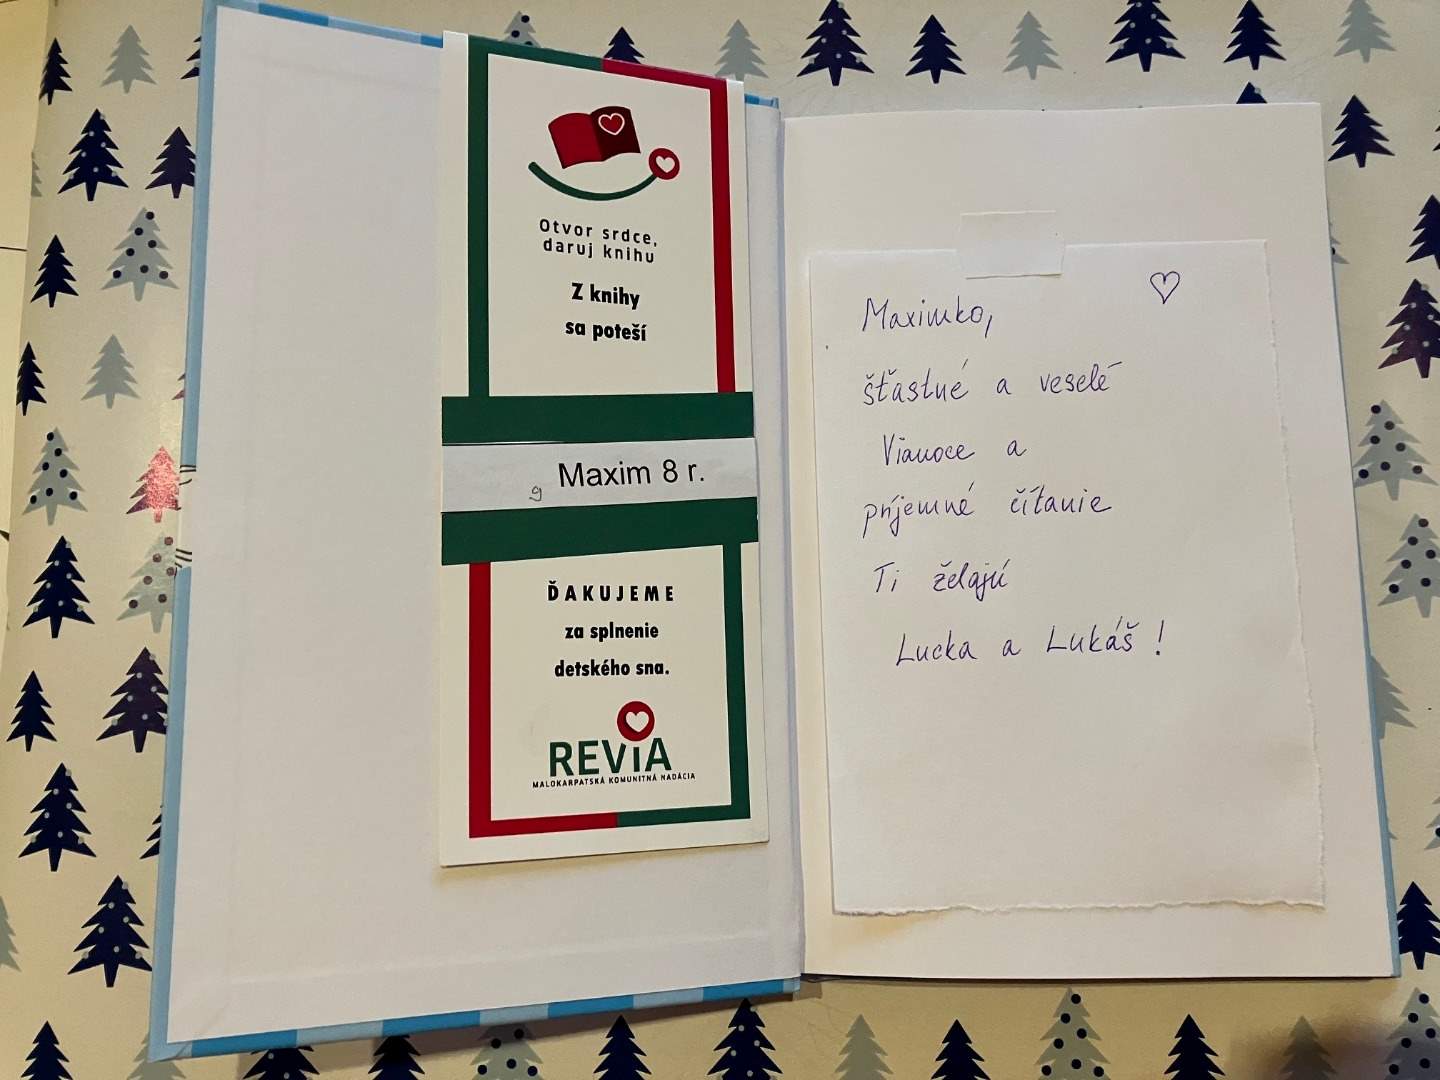 Otvor srdce,
daruj knihu
Z knihy
sa poteší
9 Maxim 8 r.
ĎAKUJEME
za splnenie
detského sna.
REViA
MALOKARPATSKÁ KOMUNITNÁ NADÁCIA
Maximko,
šťastné a veselé
Vianoce a
príjemné čítanie
Ti želajú
Lucka a Lukáš!